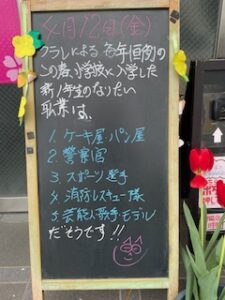 4月12日(金)
クラレによる毎年恒例の
この春、小学校に入学した
新1年生のなりたい
職業は、
1. ケーキ屋 パン屋
2. 警察官
3. スポーツ選手
4. 消防レスキュー隊
5. 芸能人歌手モデル
だそうです!!